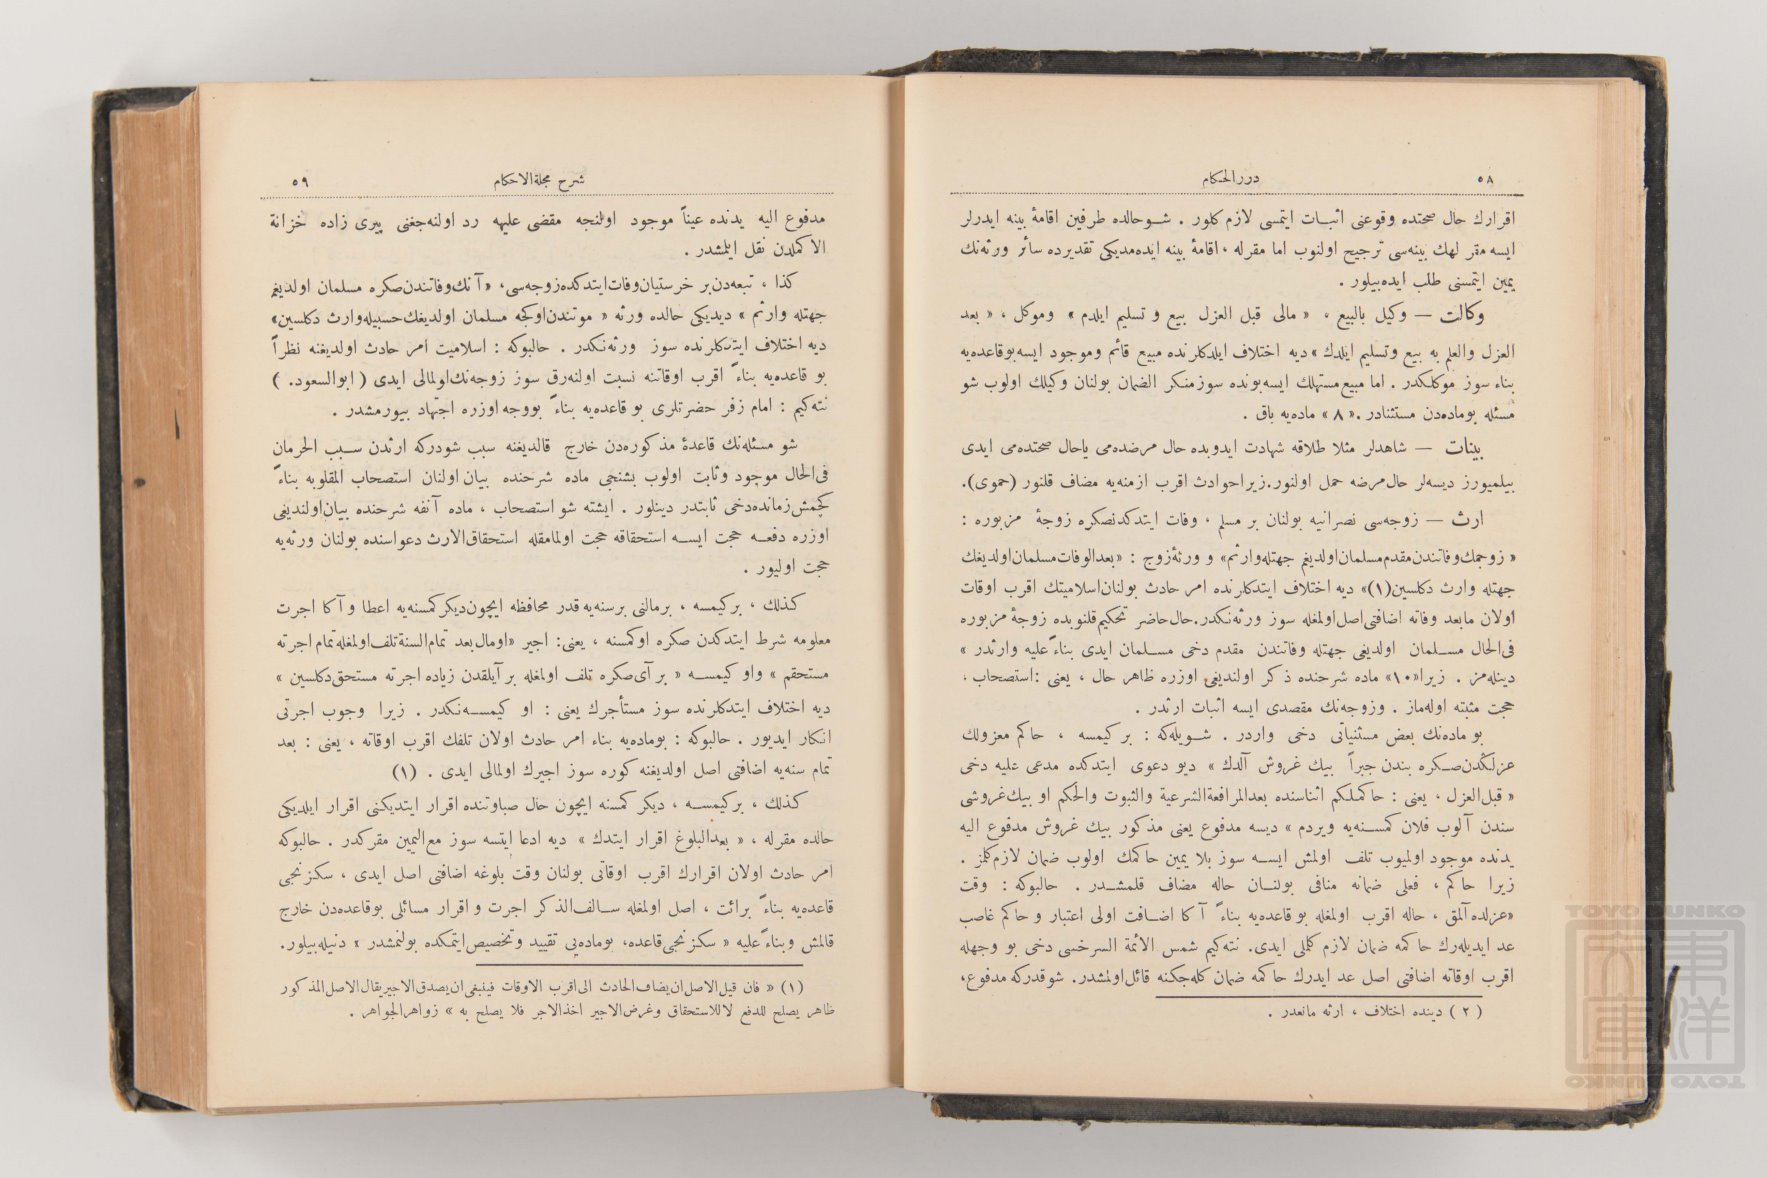 ٥٨
دررالحكام
اقرارك حال صحتده وقوعنی اثبات ایتمسی لازم كلور . شوحالده طرفین اقامهٔ بینه ایدرلر
ایسه مقر لهك بینه‌سی ترجیح اولنوب اما مقرله ، اقامهٔ بینه ایده‌مدیكی تقدیرده سائر ورثه‌نك
یمین ایتمسنی طلب ایده‌بیلور .
وكالت — وكیل بالبیع ، « مالی قبل العزل بیع و تسلیم ایلدم » وموكل ، « بعد
العزل والعلم به بیع وتسلیم ایلدك » دیه اختلاف ایلدكلرنده مبیع قائم وموجود ایسه بوقاعده‌یه
بناء سوز موكلكدر . اما مبیع مستهلك ایسه بونده سوز منكر الضمان بولنان وكیلك اولوب شو
مسئله بوماده‌دن مستثنادر . « ٨ » ماده‌یه باق .
بینات — شاهدلر مثلا طلاقه شهادت ایدوبده حال مرضده‌می یاحال صحتده‌می ایدی
بیلمیورز دیسه‌لر حال مرضه حمل اولنور. زیرا حوادث اقرب ازمنه‌یه مضاف قلنور (حموی).
ارث — زوجه‌سی نصرانیه بولنان بر مسلم ، وفات ایتدكدنصكره زوجهٔ مزبوره :
« زوجمك وفاتندن مقدم مسلمان اولدیغم جهتله وارثم » و ورثهٔ زوج : « بعدالوفات مسلمان اولدیغك
جهتله وارث دكلسین(١)» دیه اختلاف ایتدكلرنده امر حادث بولنان اسلامیتك اقرب اوقات
اولان مابعد وفاته اضافتی اصل اولمغله سوز ورثه‌نكدر. حال حاضر تحكیم قلنوبده زوجهٔ مزبوره
فی‌الحال مسلمان اولدیغی جهتله وفاتندن مقدم دخی مسلمان ایدی بناءً علیه وارثدر »
دینله‌مز . زیرا «١٠» ماده شرحنده ذكر اولندیغی اوزره ظاهر حال ، یعنی : استصحاب ،
حجت مثبته اوله‌ماز . وزوجه‌نك مقصدی ایسه اثبات ارثدر .
بو ماده‌نك بعض مستثنیاتی دخی واردر . شویله‌كه : بر كیمسه ، حاكم معزولك
عزلكدن صكره بندن جبراً بیك غروش آلدك » دیو دعوی ایتدكده مدعی علیه دخی
« قبل العزل ، یعنی : حاكملكم اثناسنده بعدالمرافعةالشرعیة والثبوت والحكم او بیك غروشی
سندن آلوب فلان كمسنه‌یه ویردم » دیسه مدفوع یعنی مذكور بیك غروش مدفوع الیه
یدنده موجود اولمیوب تلف اولمش ایسه سوز بلا یمین حاكمك اولوب ضمان لازم كلمز .
زیرا حاكم ، فعلی ضمانه منافی بولنان حاله مضاف قلمشدر . حالبوكه : وقت
«عزلده آلمق ، حاله اقرب اولمغله بو قاعده‌یه بناءً آ كا اضافت اولی اعتبار و حاكم غاصب
عد ایدیله‌رك حاكمه ضمان لازم كلملی ایدی. نته‌كیم شمس الائمة السرخسی دخی بو وجهله
اقرب اوقاته اضافتی اصل عد ایدرك حاكمه ضمان كله‌جكنه قائل اولمشدر. شوقدركه مدفوع،
( ٢ ) دینده اختلاف ، ارثه مانعدر .
شرح مجلةالاحكام
٥٩
مدفوع الیه یدنده عیناً موجود اولنجه مقضی علیهه رد اولنه‌جغنی پیری زاده خزانة
الاكملدن نقل ایلمشدر .
كذا ، تبعه‌دن بر خرستیان وفات ایتدكده زوجه‌سی، « آنك وفاتندن صكره مسلمان اولدیغم
جهتله وارثم » دیدیكی حالده ورثه « موتندن اوكجه مسلمان اولدیغك حسبیله وارث دكلسین»
دیه اختلاف ایتدكلرنده سوز ورثه‌نكدر . حالبوكه : اسلامیت امر حادث اولدیغنه نظراً
بو قاعده‌یه بناءً اقرب اوقاتنه نسبت اولنه‌رق سوز زوجه‌نك اولمالی ایدی ( ابوالسعود. )
نته‌كیم : امام زفر حضرتلری بو قاعده‌یه بناءً بووجه اوزره اجتهاد بیورمشدر .
شو مسئله‌نك قاعدهٔ مذكوره‌دن خارج قالدیغنه سبب شودركه ارثدن سبب الحرمان
فی‌الحال موجود وثابت اولوب بشنجی ماده شرحنده بیان اولنان استصحاب المقلوبه بناءً
كچمش زمانده‌دخی ثابتدر دینلور . ایشته شو استصحاب ، ماده آنفه شرحنده بیان اولندیغی
اوزره دفعه حجت ایسه استحقاقه حجت اولمامقله استحقاق‌الارث دعواسنده بولنان ورثه‌یه
حجت اولیور .
كذلك ، بركیمسه ، برمالنی برسنه‌یه قدر محافظه ایچون دیكر كمسنه‌یه اعطا و آ كا اجرت
معلومه شرط ایتدكدن صكره اوكمسنه ، یعنی: اجیر «اومال بعد تمام‌السنة تلف اولمغله تمام اجرته
مستحقم » واو كیمسه « بر آی صكره تلف اولمغله بر آیلقدن زیاده اجرته مستحق دكلسین »
دیه اختلاف ایتدكلرنده سوز مستأجرك یعنی : او كیمسه‌نكدر . زیرا وجوب اجرتی
انكار ایدیور . حالبوكه : بوماده‌یه بناء امر حادث اولان تلفك اقرب اوقاته ، یعنی : بعد
تمام سنه‌یه اضافتی اصل اولدیغنه كوره سوز اجیرك اولمالی ایدی . (١)
كذلك ، بركیمسه ، دیكر كمسنه ایچون حال صباوتنده اقرار ایتدیكنی اقرار ایلدیكی
حالده مقرله ، « بعدالبلوغ اقرار ایتدك » دیه ادعا ایتسه سوز مع‌الیمین مقركدر . حالبوكه
امر حادث اولان اقرارك اقرب اوقاتی بولنان وقت بلوغه اضافتی اصل ایدی ، سكزنجی
قاعده‌یه بناءً برائت ، اصل اولمغله سالف‌الذكر اجرت و اقرار مسائلی بوقاعده‌دن خارج
قالمش وبناءً علیه « سكزنجی قاعده، بوماده‌یی تقیید وتخصیص ایتمكده بولنمشدر » دنیله‌بیلور.
(١) « فان قیل الاصل ان یضاف الحادث الی اقرب الاوقات فینبغی ان یصدق الاجیر یقال الاصل المذكور
ظاهر یصلح للدفع لاللاستحقاق وغرض الاجیر اخذالاجر فلا یصلح به » زواهرالجواهر .
TOYO BUNKO
東洋文庫
TOYO BUNKO